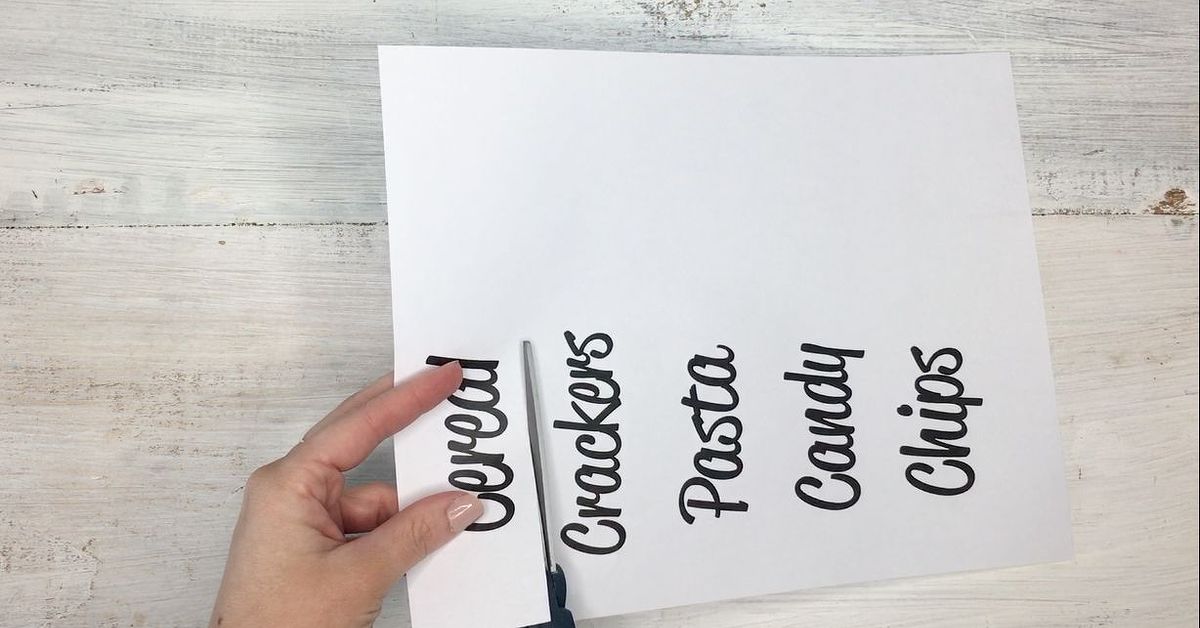 Cereal
Crackers
Pasta
Candy
Chips